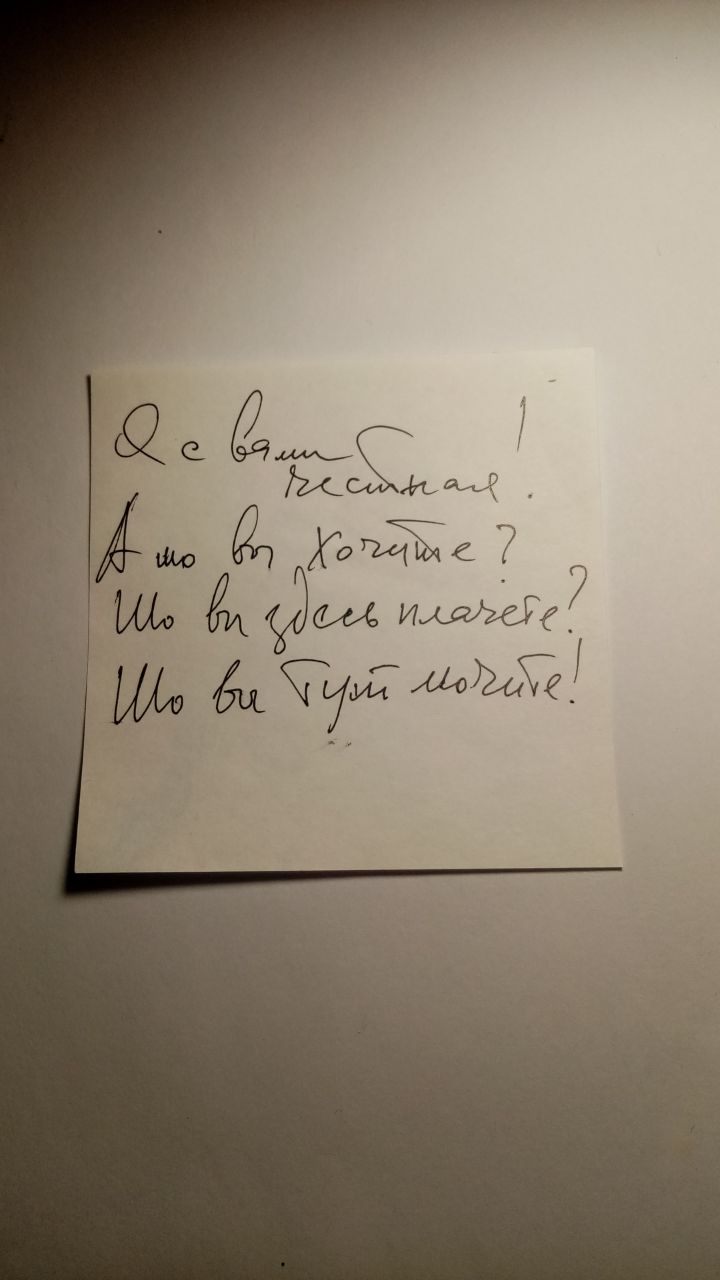 Я с вами
честная!
А шо вы хочите?
Шо вы здесь плачете?
Шо вы тут мочите!